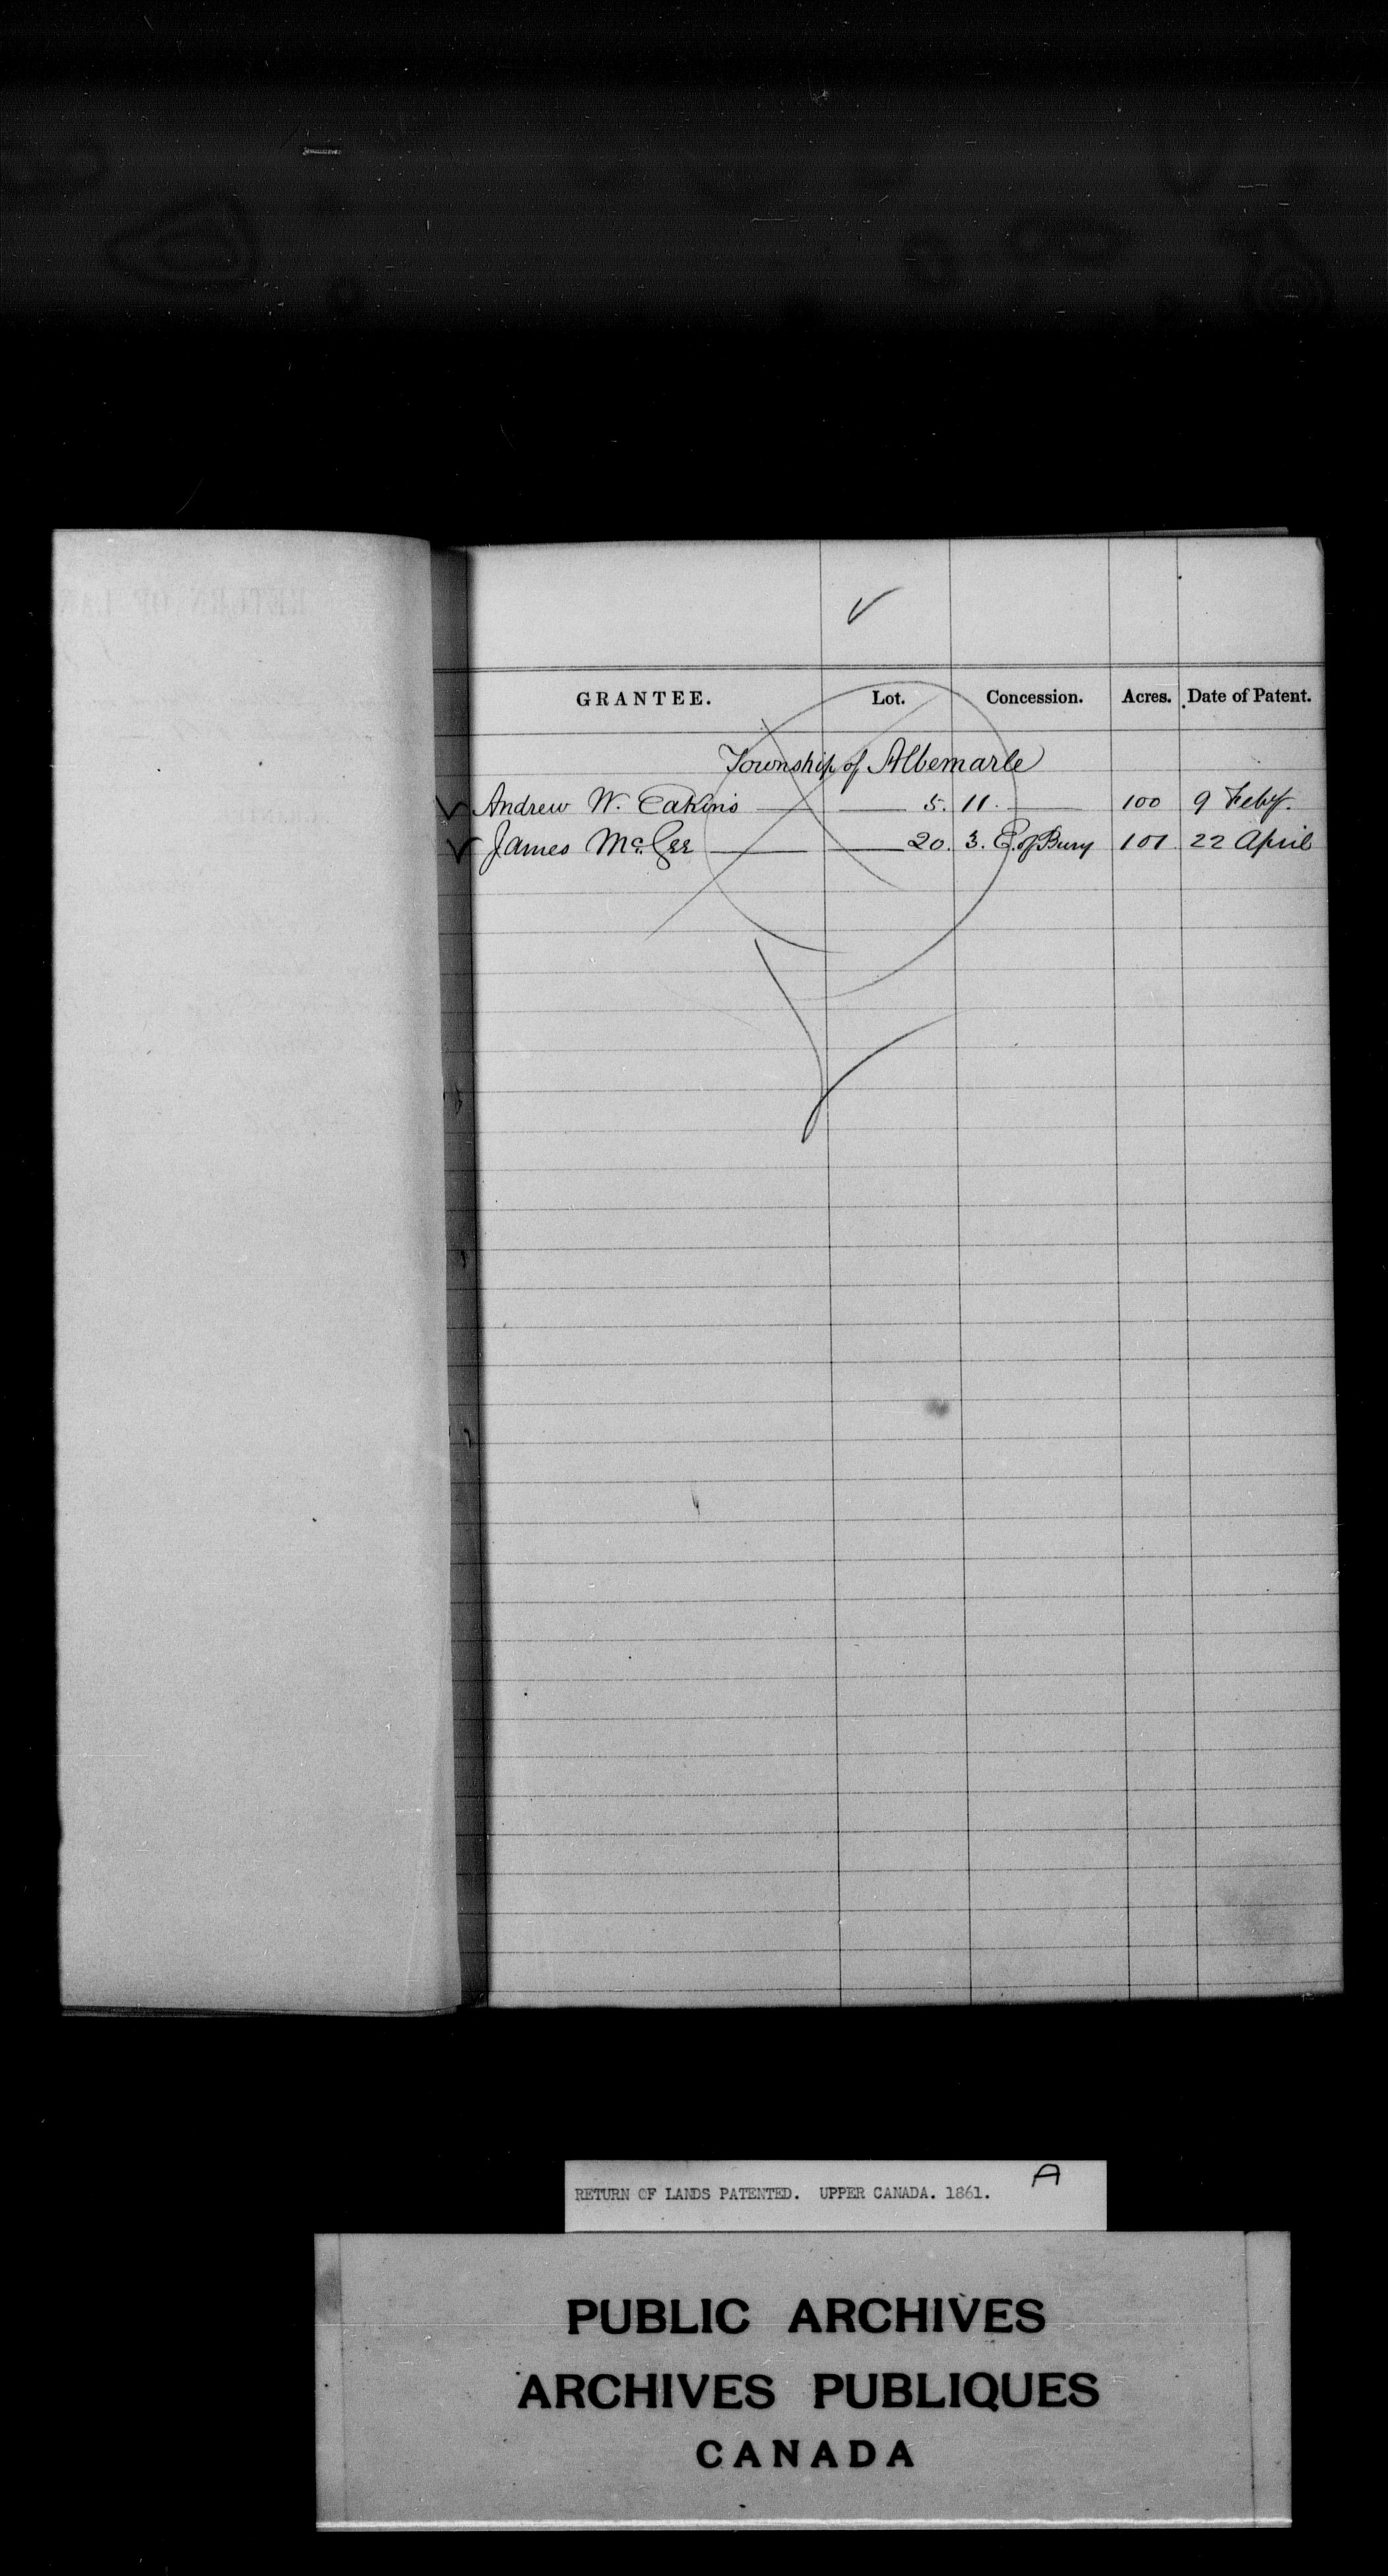 GRANTEE. Lot. Concession. Acres. Date of Patent.
Township of Albemarle
Andrew W. Eakins 5. 11. 100 9 Feby.
James McGee 20. 3. E. of Bury 101 22 April
A
RETURN OF LANDS PATENTED. UPPER CANADA. 1861.
PUBLIC ARCHIVES
ARCHIVES PUBLIQUES
CANADA